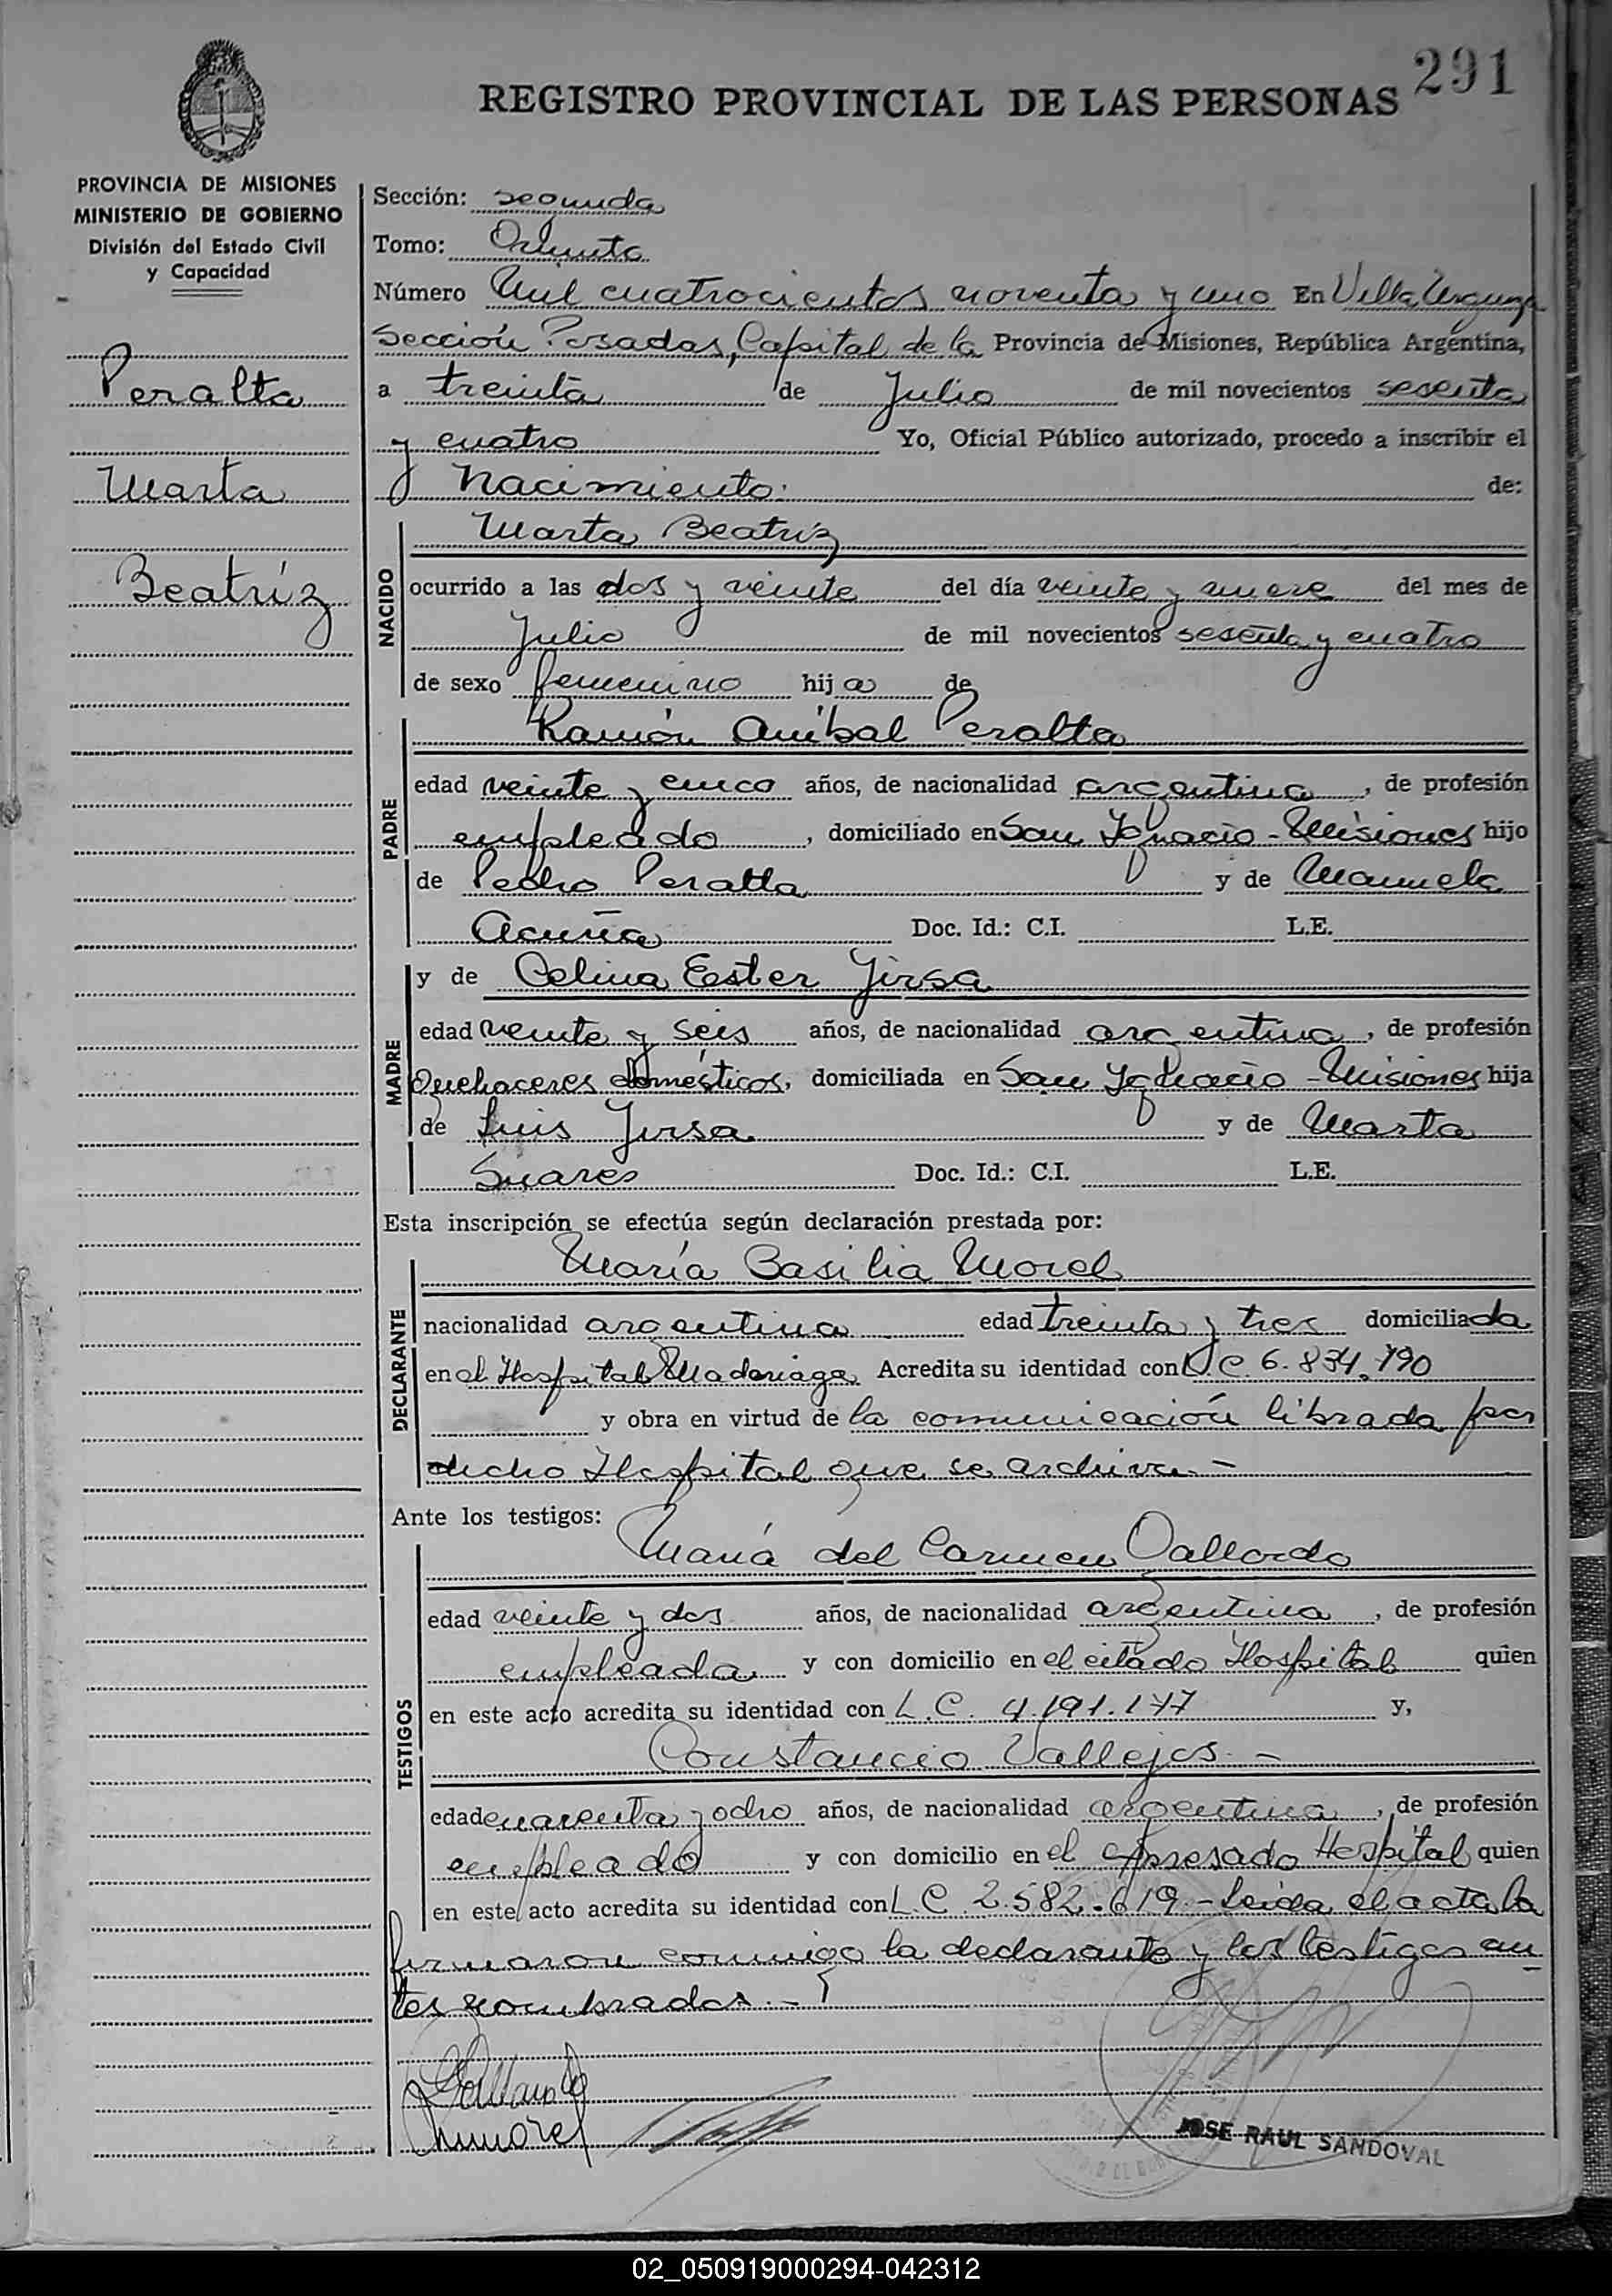 291
REGISTRO PROVINCIAL DE LAS PERSONAS
PROVINCIA DE MISIONES
MINISTERIO DE GOBIERNO
División del Estado Civil
y Capacidad
Peralta
Marta
Beatríz
Sección: segunda
Tomo: Quinto
Número Mil cuatrocientos noventa y uno En Villa Urquiza
Sección Posadas, Capital de la Provincia de Misiones, República Argentina,
a treinta de Julio de mil novecientos sesenta
y cuatro Yo, Oficial Público autorizado, procedo a inscribir el
nacimiento de:
NACIDO
Marta Beatríz
ocurrido a las dos y veinte del día veinte y nueve del mes de
Julio de mil novecientos sesenta y cuatro
de sexo femenino hija de
PADRE
Ramón Aníbal Peralta
edad veinte y cinco años, de nacionalidad argentina, de profesión
empleado, domiciliado en San Ignacio - Misiones hijo
de Pedro Peralta y de Manuela
Acuña Doc. Id.: C.I. L.E.
MADRE
y de Celina Ester Jirsa
edad veinte y seis años, de nacionalidad argentina, de profesión
Quehaceres domésticos, domiciliada en San Ignacio - Misiones hija
de Luis Jirsa y de Marta
Suares Doc. Id.: C.I. L.E.
Esta inscripción se efectúa según declaración prestada por:
DECLARANTE
María Basilia Morel
nacionalidad argentina edad treinta y tres domiciliada
en el Hospital Madariaga Acredita su identidad con L.C. 6.834.790
y obra en virtud de la comunicación librada por
dicho Hospital que se archiva. -
Ante los testigos:
TESTIGOS
María del Carmen Gallardo
edad veinte y dos años, de nacionalidad argentina, de profesión
empleada y con domicilio en el citado Hospital quien
en este acto acredita su identidad con L.C. 4.191.177 y,
Constancio Vallejos. -
edad cuarenta y ocho años, de nacionalidad argentina, de profesión
empleado y con domicilio en el expresado Hospital quien
en este acto acredita su identidad con L.C 2.582.619 - Leida el acta la
firmaron conmigo la declarante y los testigos an
tes nombrados. -
Morel
JOSE RAUL SANDOVAL
02_050919000294-042312